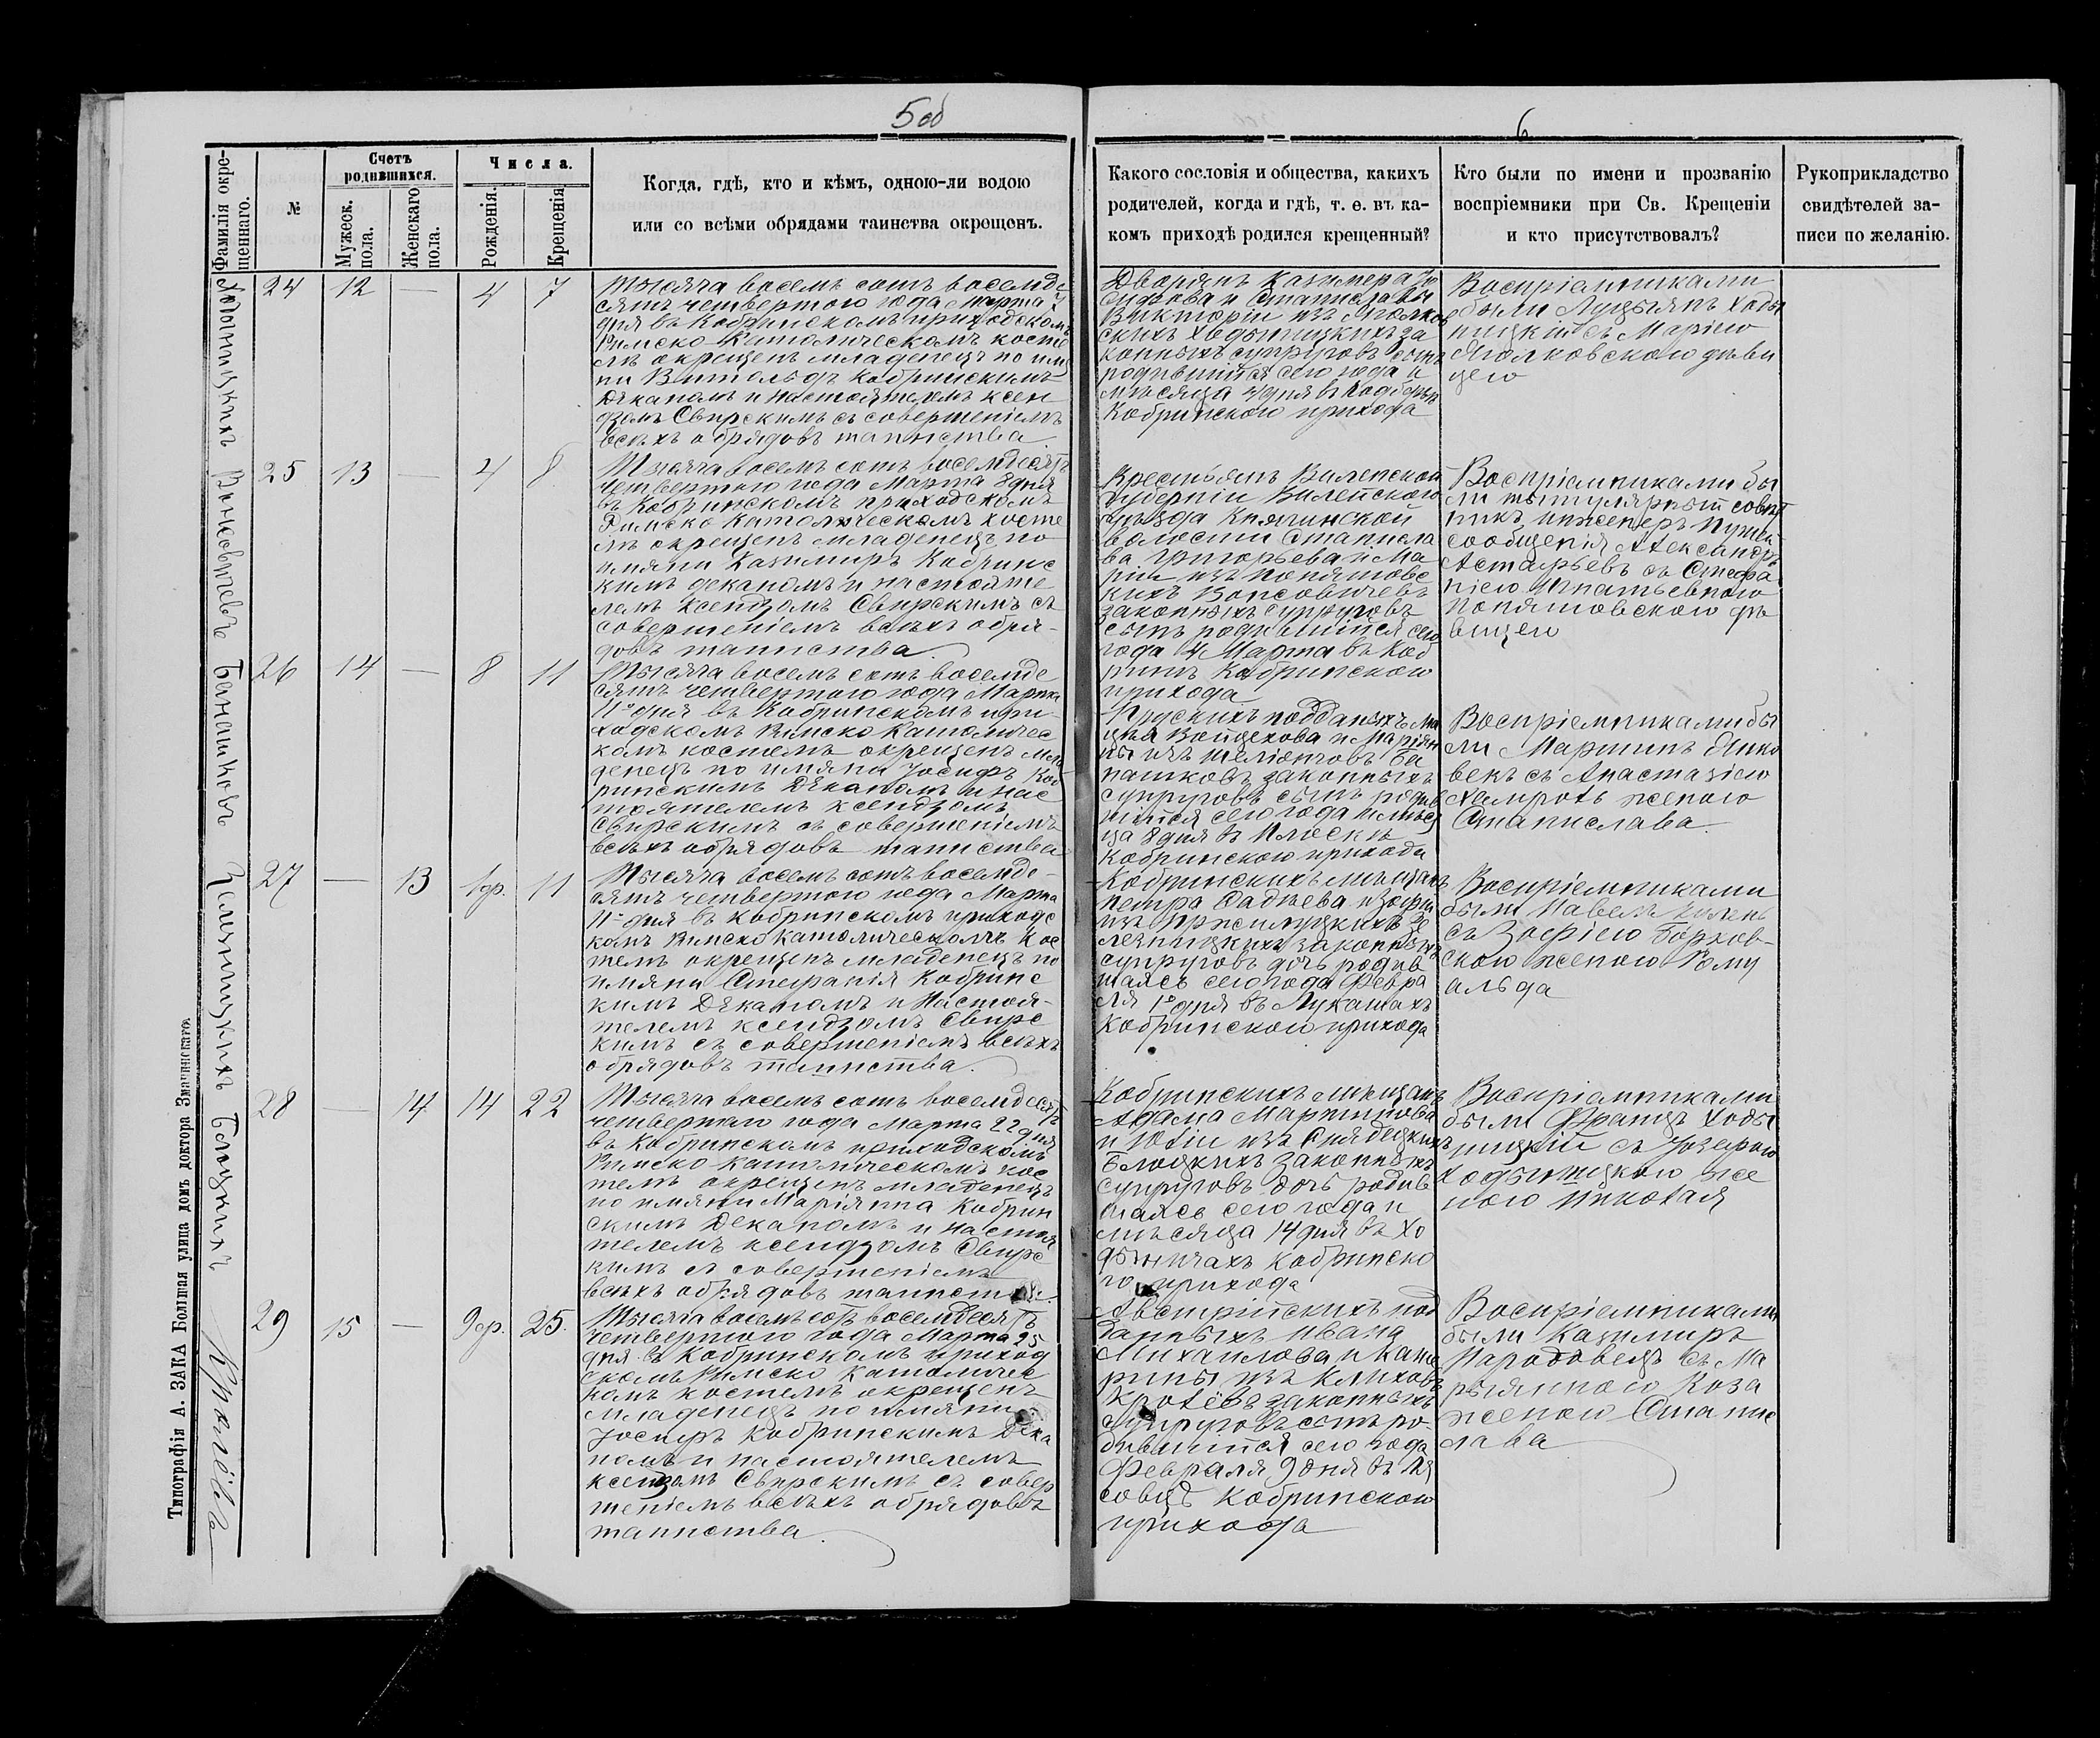 5об
6
Фамилія окре-
щеннаго.
№
Счетъ
родившихся.
Мужеск.
пола.
Женскаго
пола.
Числа.
Рожденія.
Крещенія
Когда, гдѣ, кто и кѣмъ, одною-ли водою
или со всѣми обрядами таинства окрещенъ.
Какого сословія и общества, какихъ
родителей, когда и гдѣ, т. е. въ ка-
комъ приходѣ родился крещенный?
Кто были по имени и прозванію
воспріемники при Св. Крещеніи
и кто присутствовалъ?
Рукоприкладство
свидѣтелей за-
писи по желанію.
24 12 — 4 7
Тысяча восемь сотъ восемьде
сятъ четвертого года Марта 7
дня въ Кобринскомъ приходскомъ
Римско Католическомъ косте
лѣ окрещенъ младенецъ по имя
ни Витольдъ Кобринскимъ
Деканомъ и Настоятелемъ ксен
дзомъ Свирскимъ съ совершеніемъ
всѣхъ обрядовъ таинства
Дворянъ Казимера
и Станиславы
Викторіи изъ
скихъ Ходыницкихъ за
конныхъ супруговъ сынъ
родившійся сего года и
мѣсяца 4 дня въ
Кобринского прихода
Воспріемниками
были Люцыянъ Ходы
ницкій съ Маріею
девѣ
цею
25 13 — 4 8
Тысяча восемь сотъ восемдесятъ
четвертого года Марта 8 дня
въ Кобринскомъ приходскомъ
Римско Католическомъ косте
лѣ окрещенъ младенецъ по
имяни Казимиръ Кобринс
кимъ деканомъ и настояте
лемъ ксендзомъ Свирскимъ съ
совершеніемъ всѣхъ обря-
довъ таинства.
Крестьянъ Виленской
губерніи Вилейского
уѣзда Княгинской
волости Станисла
ва Григорьева и Ма
ріи изъ Понятовс
кихъ Вонсовичевъ
законныхъ супруговъ
сынъ родившійся сего
года 4 Марта въ Коб
ринѣ Кобринского
прихода
Воспріемниками бы
ли титулярный совѣт
никъ инженеръ путей
сообщенія Александръ
Астарьевъ съ Стефа
ніею Игнатьевною
Понятовскою дѣ
вицею
26 14 — 8 11
Тысяча восемь сотъ восемьде
сятъ четвертого года Марта
11 дня въ Кобринскомъ при-
ходскомъ Римско Католичес
комъ костелѣ окрещенъ мла
денецъ по имяни Іосифъ Коб
ринскимъ Деканомъ и Нас
тоятелемъ ксендзомъ
Свирскимъ съ совершеніемъ
всѣхъ обрядовъ таинства
Прускихъ подданыхъ
Войцехова и Маріян
ны изъ Ба
нашковъ законныхъ
супруговъ сынъ родив
шійся сего года и мѣся
ца 8 дня въ Плоскѣ
Кобринского прихода
Воспріемниками бы
ли Мартинъ Янко
векъ съ Анастазіею
женою
Станислава.
27 — 13 1 фр. 11
Тысяча восемь сотъ восемьде-
сятъ четвертого года Марта
11 дня въ Кобринскомъ приходс
комъ Римско Католическомъ Кос
телѣ окрещенъ младенецъ по
имяни Стефанія Кобринс
кимъ Деканомъ и Настоя-
телемъ ксендзомъ Свирс
кимъ съ совершеніемъ всѣхъ
обрядовъ таинства.
Кобринскихъ мѣщанъ
Петра Фадѣева и Зофіи
изъ Пржилуцкихъ Зе
лезницкихъ законныхъ
супруговъ дочь родив
шаясь сего года Февра
ля 1 дня въ Лукашахъ
Кобринской прихода
Воспріемниками
были Павелъ
съ Зофіею Борков-
скою женою Рому
альда
28 — 14 14 22
Тысяча восемь сотъ восемдесятъ
четвертого года Марта 22 дня
въ Кобринскомъ приходскомъ
Римско-Католическомъ кос
телѣ окрещенъ младенецъ
по имяни Маріянна Кобрин
скимъ Деканомъ и Настоя
телемъ ксендзомъ Свирс
кимъ съ совершеніемъ
всѣхъ обрядовъ таинства.
Кобринскихъ мѣщанъ
Адама Мартинова
и Юліи изъ Снядецкихъ
Блоцкихъ законныхъ
супруговъ дочь родив
шаясь сего года и
мѣсяца 14 дня въ Хо
дыничахъ Кобринско
го прихода
Воспріемниками
были Францъ Ходы
ницкій съ Юзефою
Ходыницкою же
ною Николая
29 15 — 9 фр. 25.
Тысяча восемь сотъ восемдесятъ
четвертого года Марта 25
дня въ Кобринскомъ приход
скомъ Римско Католичес
комъ костелѣ окрещенъ
младенецъ по имяни
Іосифъ Кобринскимъ Дека
номъ и настоятелемъ
ксендзомъ Свирскимъ съ совер
шеніемъ всѣхъ обрядовъ
таинства.
Австрійскихъ под
данныхъ Ивана
Михаилова и Кате
рины изъ Климовъ
Кролёвъ законныхъ
супруговъ сынъ ро-
дившійся сего года
Февраля 9 дня въ Ля
совцѣ Кобринского
прихода
Воспріемниками
были Казимиръ
Народовецъ съ Ма
рыянною Коза
женою Станис
лава
Ходыницкихъ Вонсовичевъ Банашковъ Зелезницкихъ Блоцкихъ Кролёвъ
Типографія А. ЗАКА Большая улица домъ доктора Змачинскаго.